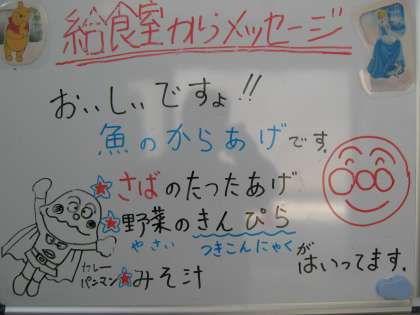 給食室からメッセージ
おいしいですょ!!
魚のからあげです。
★さばのたつたあげ
★野菜のきんぴら
やさい つきこんにゃくが
はいってます。
カレーパンマン
★みそ汁